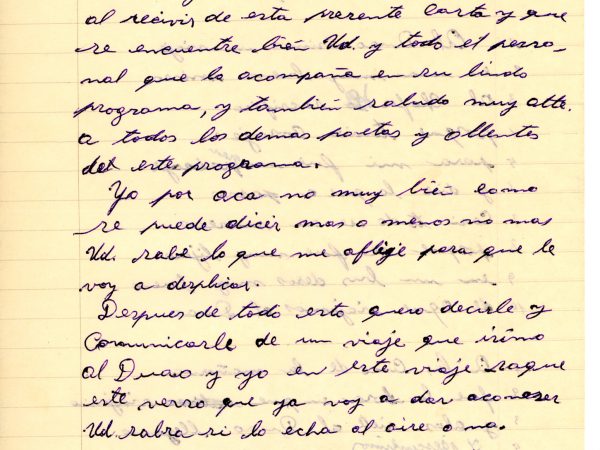 al recivir de esta presente carta y que
se encuentre bién Ud. y todo el perso-
nal que la acompaña en su lindo
programa, y también saludo muy atte.
a todos los demas poetas y ollentes
del este programa.
Yo por aca no muy bién como
se puede dicir mas o menos no mas
Ud. sabe lo que me aflige para que le
voy a desplicar.
Despues de todo esto quero decirle y
Comunicarle de un viaje que irimo
al Duao y yo en este viaje saque
este verso que ya voy a dar aconoser
Ud. sabra si lo echa al aire o no.